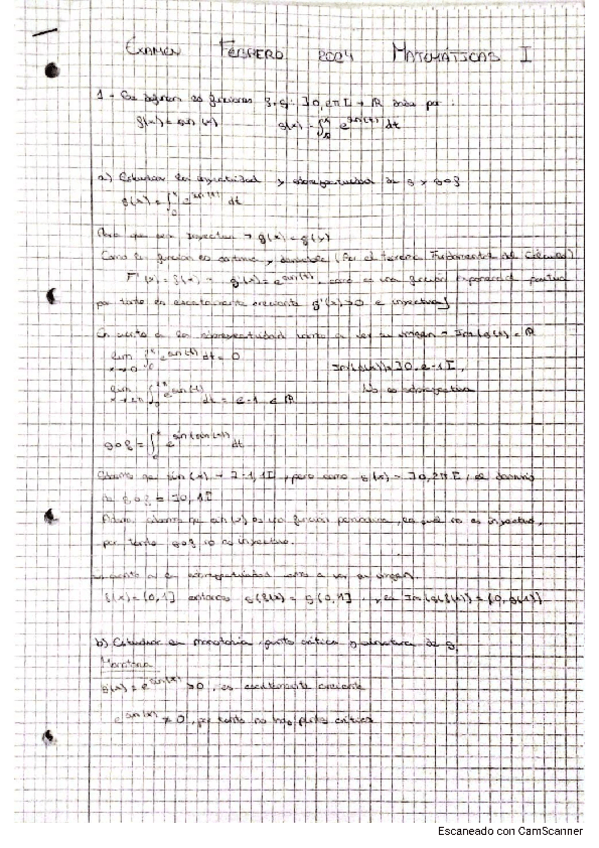 EXAMEN FEBRERO 2024 MATEMÁTICAS I
1 - Se definen las funciones f, g: ]0, 2π[ → ℝ dadas por:
f(x) = sin (x) g(x) = ∫ e^sin(t) dt
a) Estudiar la inyectividad y sobreyectividad de g y g∘f
g(x) = ∫₀ˣ e^sin(t) dt
Para que sea inyectiva → g(x) = g(y)
Como la función es continua y derivable (Por el teorema Fundamental del Cálculo)
F'(x) = f(x) → g'(x) = e^sin(x), como es una función exponencial positiva
por tanto es estrictamente creciente g'(x) > 0 e inyectiva
En cuanto a la sobreyectividad vamos a ver su imagen → Im(g(x)) = ℝ
lim x→0 ∫₀ˣ e^sin(t) dt = 0 Im(g(x)) = ]0, e-1[,
lim x→2π ∫₀ˣ e^sin(t) dt = e-1 ∈ ℝ no es sobreyectiva
g∘f = ∫₀ˣ e^sin(sin(t)) dt
Sabemos que sin(x) → ]-1, 1[, pero como g(x) → ]0, 2π[, el dominio
de g∘f = ]0, 1[
Además, sabemos que sin(x) es una función periódica, la cual no es inyectiva,
por tanto g∘f no es inyectiva.
En cuanto a la sobreyectividad vamos a ver su imagen
f(x) = (0, 1] entonces g(f(x)) = g(0, 1] , Im(g(f(x))) = (0, g(1)]
b) Estudiar la monotonía, puntos críticos y de g.
Monotonía
g'(x) = e^sin(x) > 0, es estrictamente creciente
e^sin(x) ≠ 0, por tanto no hay puntos críticos
Escaneado con CamScanner